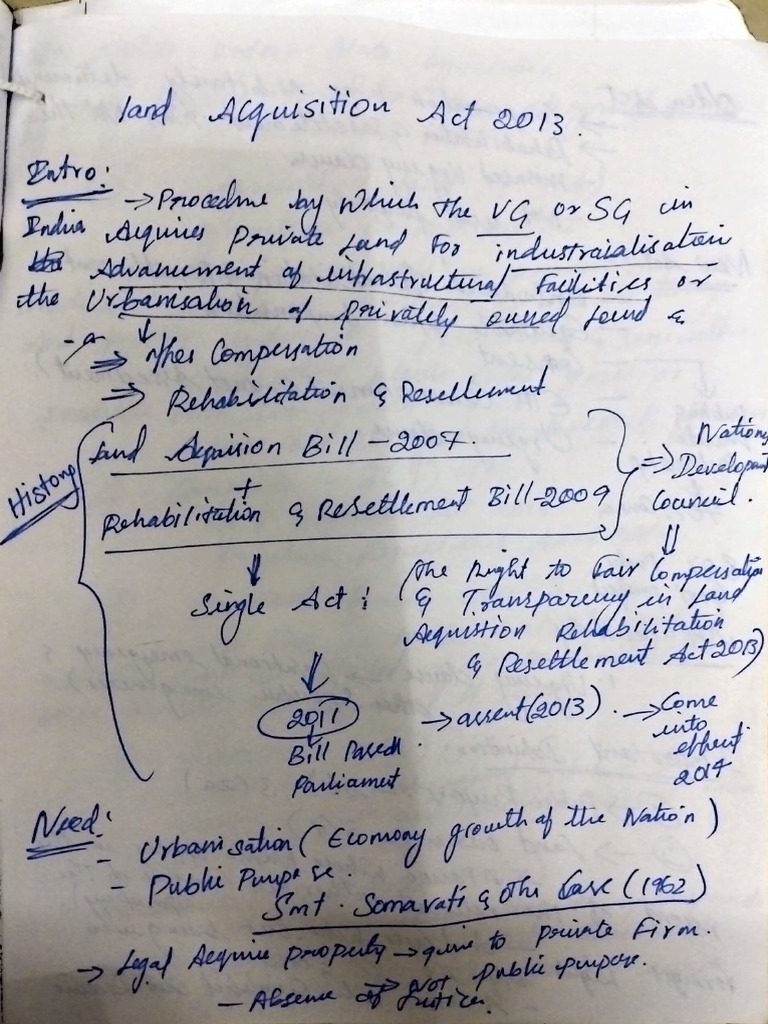 land Acquisition Act 2013.
Intro:
→ Procedure by which the UG or SG in
India Aquires private land for industraialisation
Advancement of infrastructural Facilities or
the Urbanisation of privately owned land &
⇒ Compensation
⇒ Rehabilitation & Resettlement
History
land Acquision Bill - 2007.
+
Rehabilitation & Resettlement Bill-2009
⇒ National Development Council.
Single Act : (the Right to Fair Compensation
& Transparency in Land
Acquistion Rehabilitation
& Resettlement Act 2013)
2011 → assent (2013). → Come
into
effect
2014
Bill Passed
Parliament
Need:
- Urbanisation ( Economy growth of the Nation )
- Public Purpose.
Smt. Somavati & Othe Case (1962)
→ Legal Acquire property → give to private Firm.
→ Not public purpose.
- Absense of Justice.